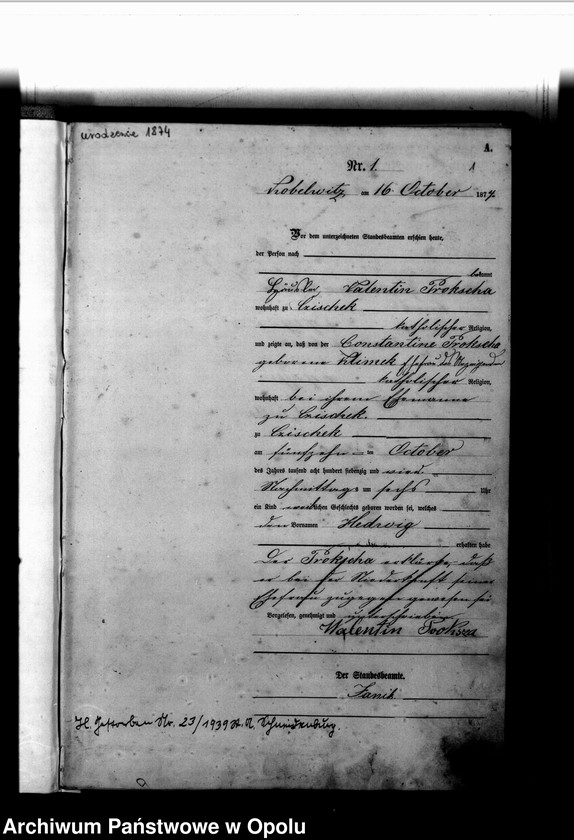 urodzenie 1874
A.
Nr. 1.
1
Kobelwitz, am 16. October 1874
Vor dem unterzeichneten Standesbeamten erschien heute,
der Person nach
bekannt
Häusler Valentin Prokscha
wohnhaft zu Czischek
katholischer Religion,
und zeigte an, daß von der Constantine Prokscha
geborene Klimek Ehefrau des Anzeigenden
katholischer Religion,
wohnhaft bei ihrem Ehemanne
zu Czischek.
zu Czischek
am fünfzehn ten October
des Jahres tausend acht hundert siebenzig und vier
Nachmittags um sechs Uhr
ein Kind weiblichen Geschlechts geboren worden sei, welches
den Vornamen Hedwig
erhalten habe
Der Prokscha erklärte, daß
er bei der Niederkunft seiner
Ehefrau zugegen gewesen sei.
Vorgelesen, genehmigt und unterschrieben
Walentin
Der Standesbeamte.
Janik
H. Gestorben Nr. 23/1939 St. A.
Archiwum Państwowe w Opolu